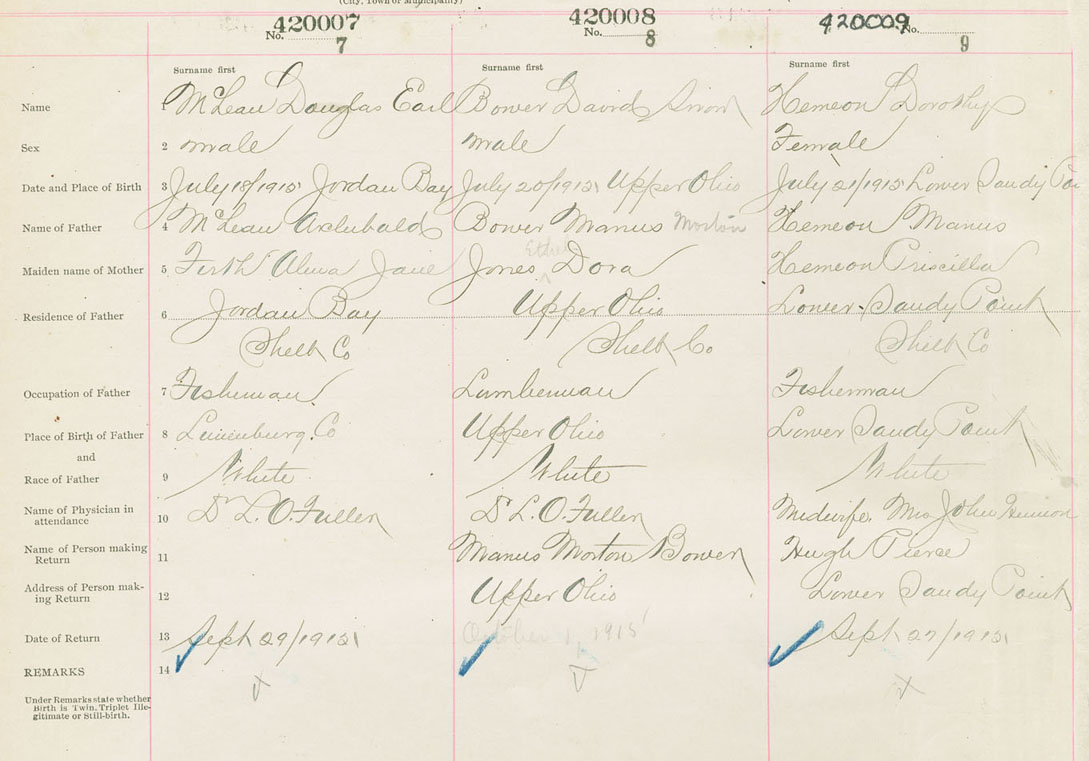 (City, Town or Municipality)
420007 420008 420009
No. 7 No. 8 No. 9
Surname first Surname first Surname first
Name 1 McLean Douglas Earl Bower David Hemeon Dorothy
Sex 2 male male Female
Date and Place of Birth 3 July 18/1915 Jordan Bay July 20/1915 Upper Ohio July 21/1915 Lower Sandy Poi
Name of Father 4 McLean Archibald Bower Manus Morton Hemeon Manus
Ethel
Maiden name of Mother 5 Firth Alma Jane Jones Dora Hemeon Priscilla
Residence of Father 6 Jordan Bay Upper Ohio Lower Sandy Point
Shelb Co Shelb Co Shelb Co
Occupation of Father 7 Fisherman Lumberman Fisherman
Place of Birth of Father 8 Lunenburg Co Upper Ohio Lower Sandy Point
and
Race of Father 9 White White White
Name of Physician in attendance 10 Dr L. O. Fuller Dr L. O. Fuller Midwife Mrs John
Name of Person making Return 11 Manus Morton Bower Hugh Pierce
Address of Person making Return 12 Upper Ohio Lower Sandy Point
Date of Return 13 Sept 29/1915 October 1, 1915 Sept 27/1915
REMARKS 14
Under Remarks state whether
Birth is Twin, Triplet Ille-
gitimate or Still-birth.